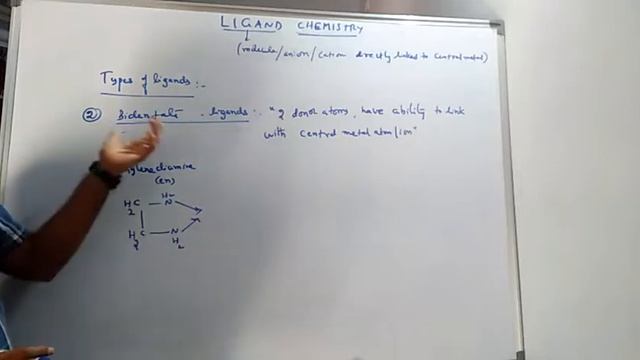 LIGAND CHEMISTRY
(molecule/anion/cation directly linked to central metal)
Types of ligands:-
② Bidentate ligands:- "2 donor atoms, have ability to link
with central metal atm/ion"
(en)
H2C — NH2
H2C — NH2